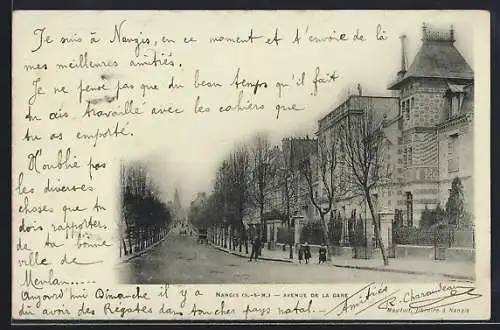 Je suis à Nangis, en ce moment et t'envoie de là
mes meilleures amitiés.
Je ne pense pas que du beau temps qu'il fait
tu ais travaillé avec les cahiers que
tu as emporté.
N'oublié pas
les diverses
choses que tu
dois rapporter
de ta bonne
ville de
Meulan.....
Aujourd'hui Dimanche il y a
dû avoir des Régates dans ton cher pays natal
Amitiés
NANGIS (S.-&-M.) — AVENUE DE LA GARE
libraire à Nangis